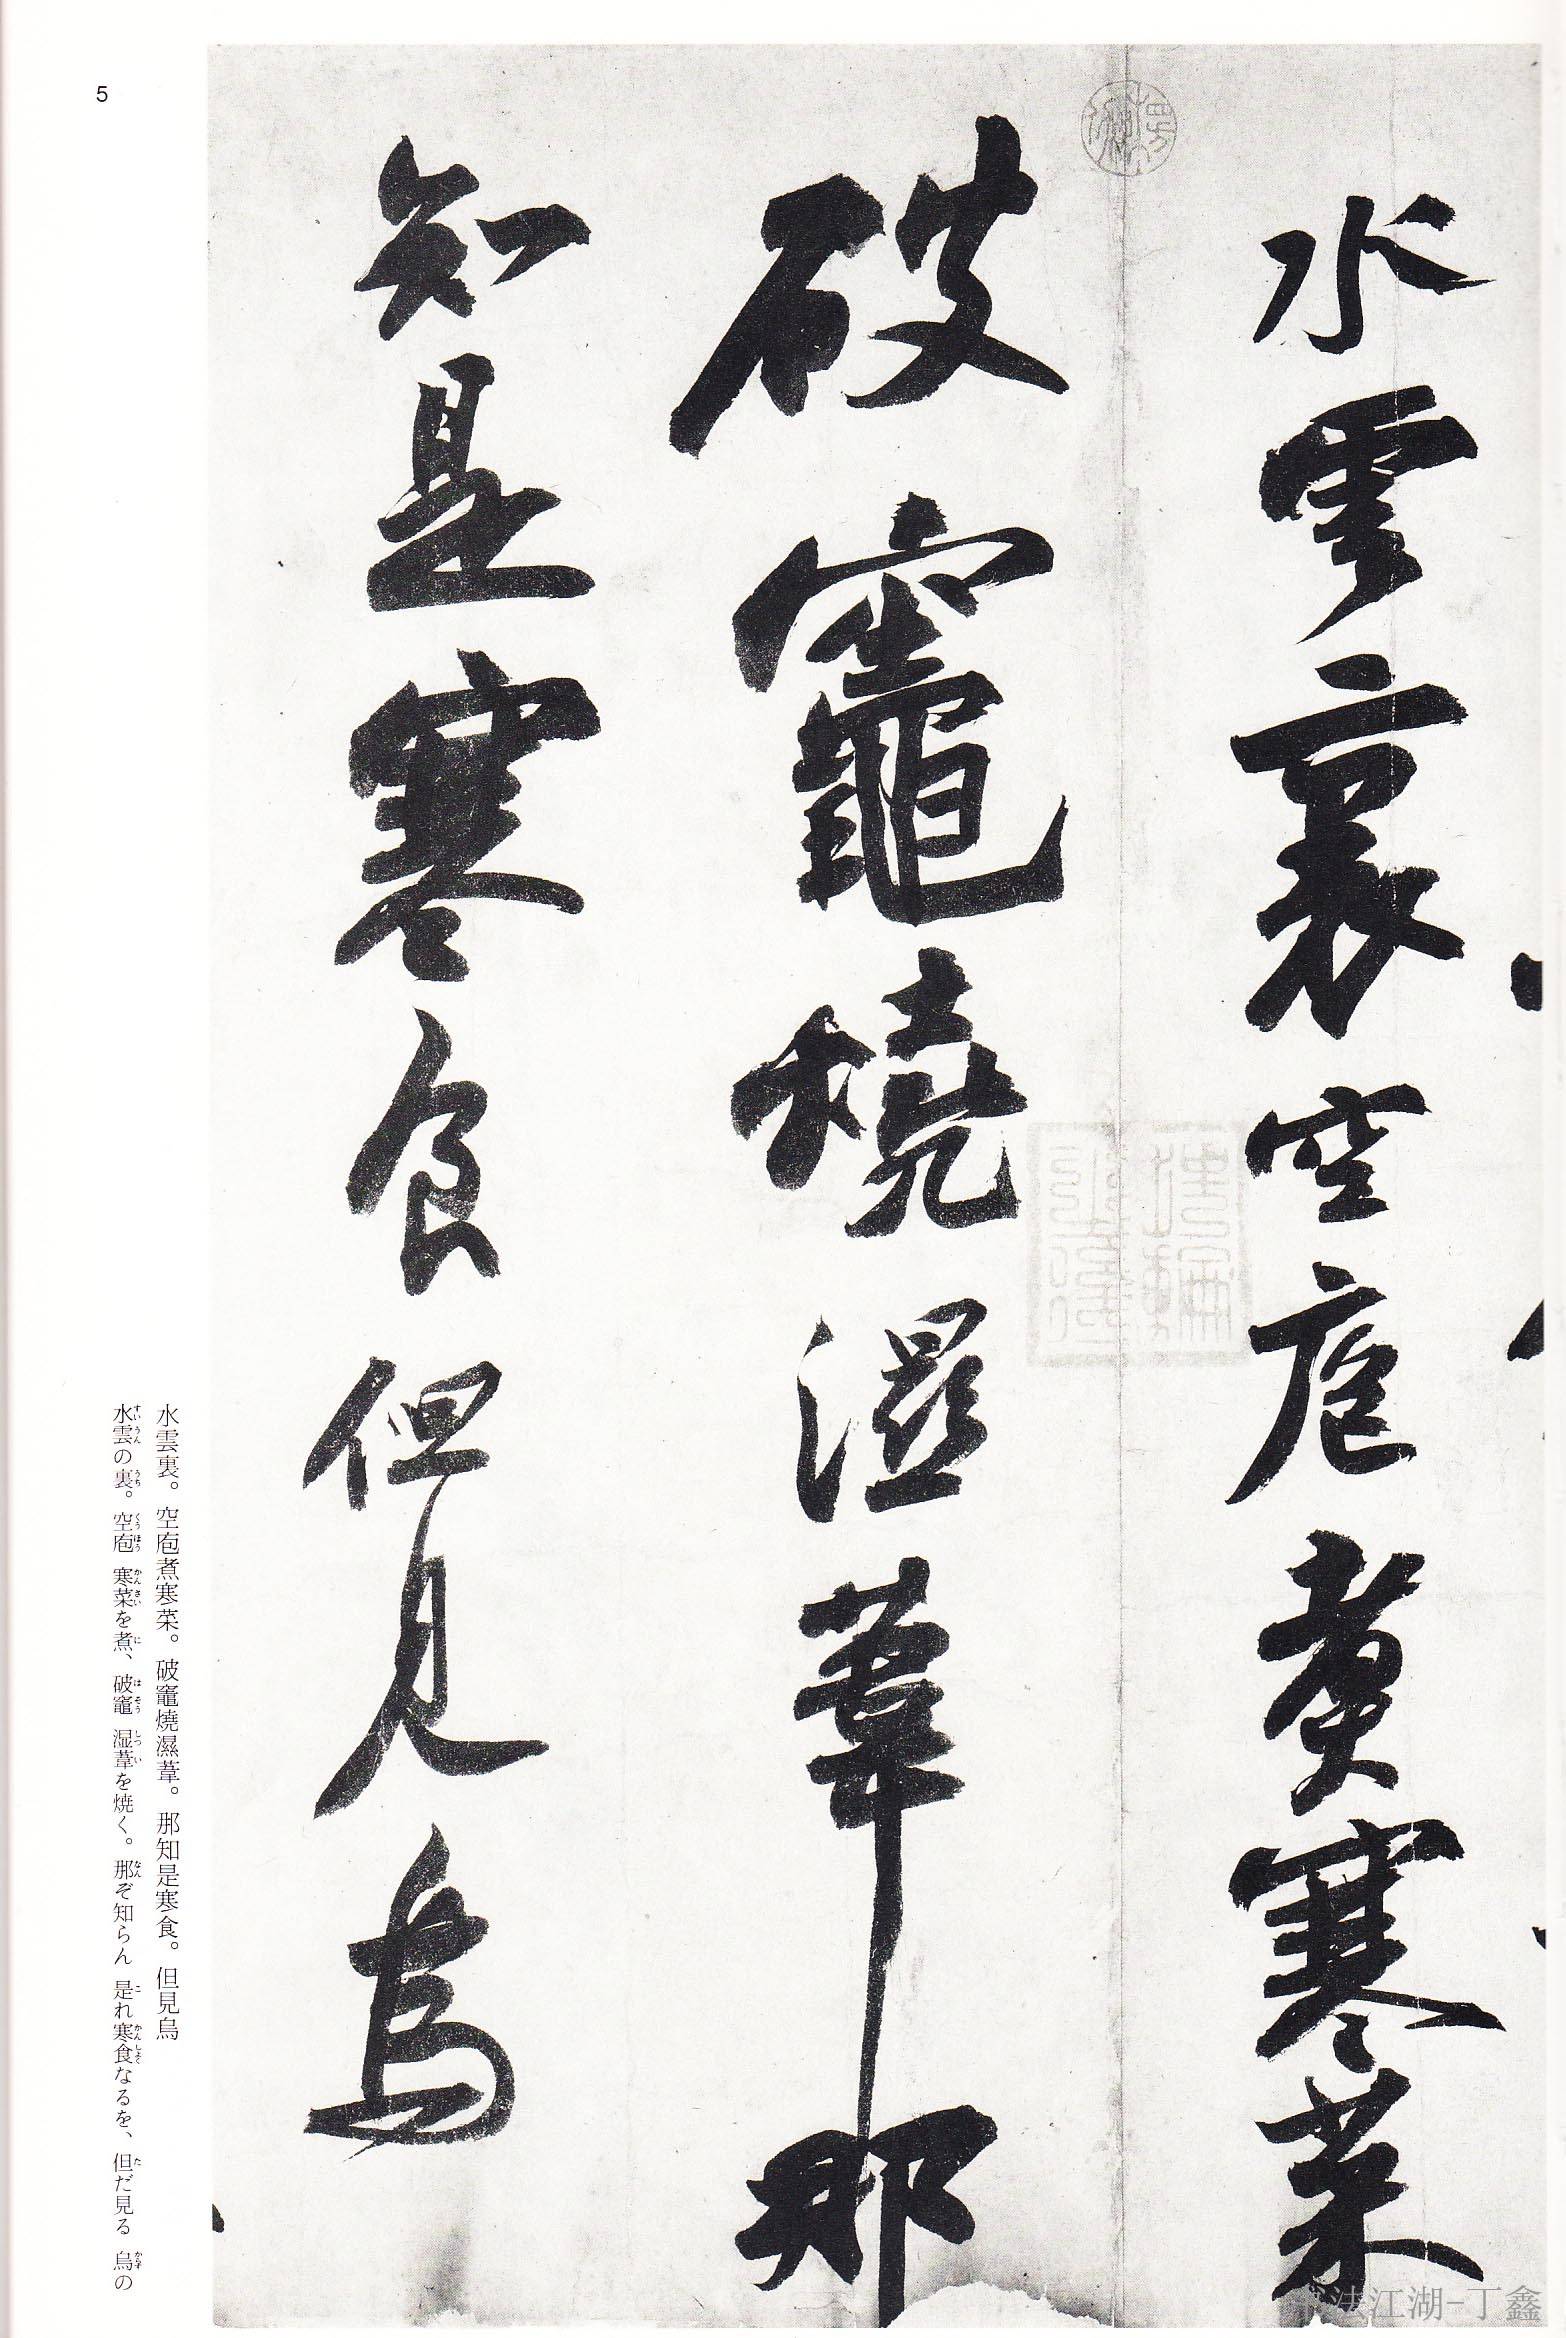 水雲裏空庖煮寒菜
破竈燒濕葦那
知是寒食但見烏
5
水雲裏。空庖煮寒菜。破竈燒濕葦。那知是寒食。但見烏
水雲の裏。空庖 寒菜を煮、破竈 湿葦を焼く。那ぞ知らん 是れ寒食なるを、但だ見る 烏の
法江湖-丁鑫